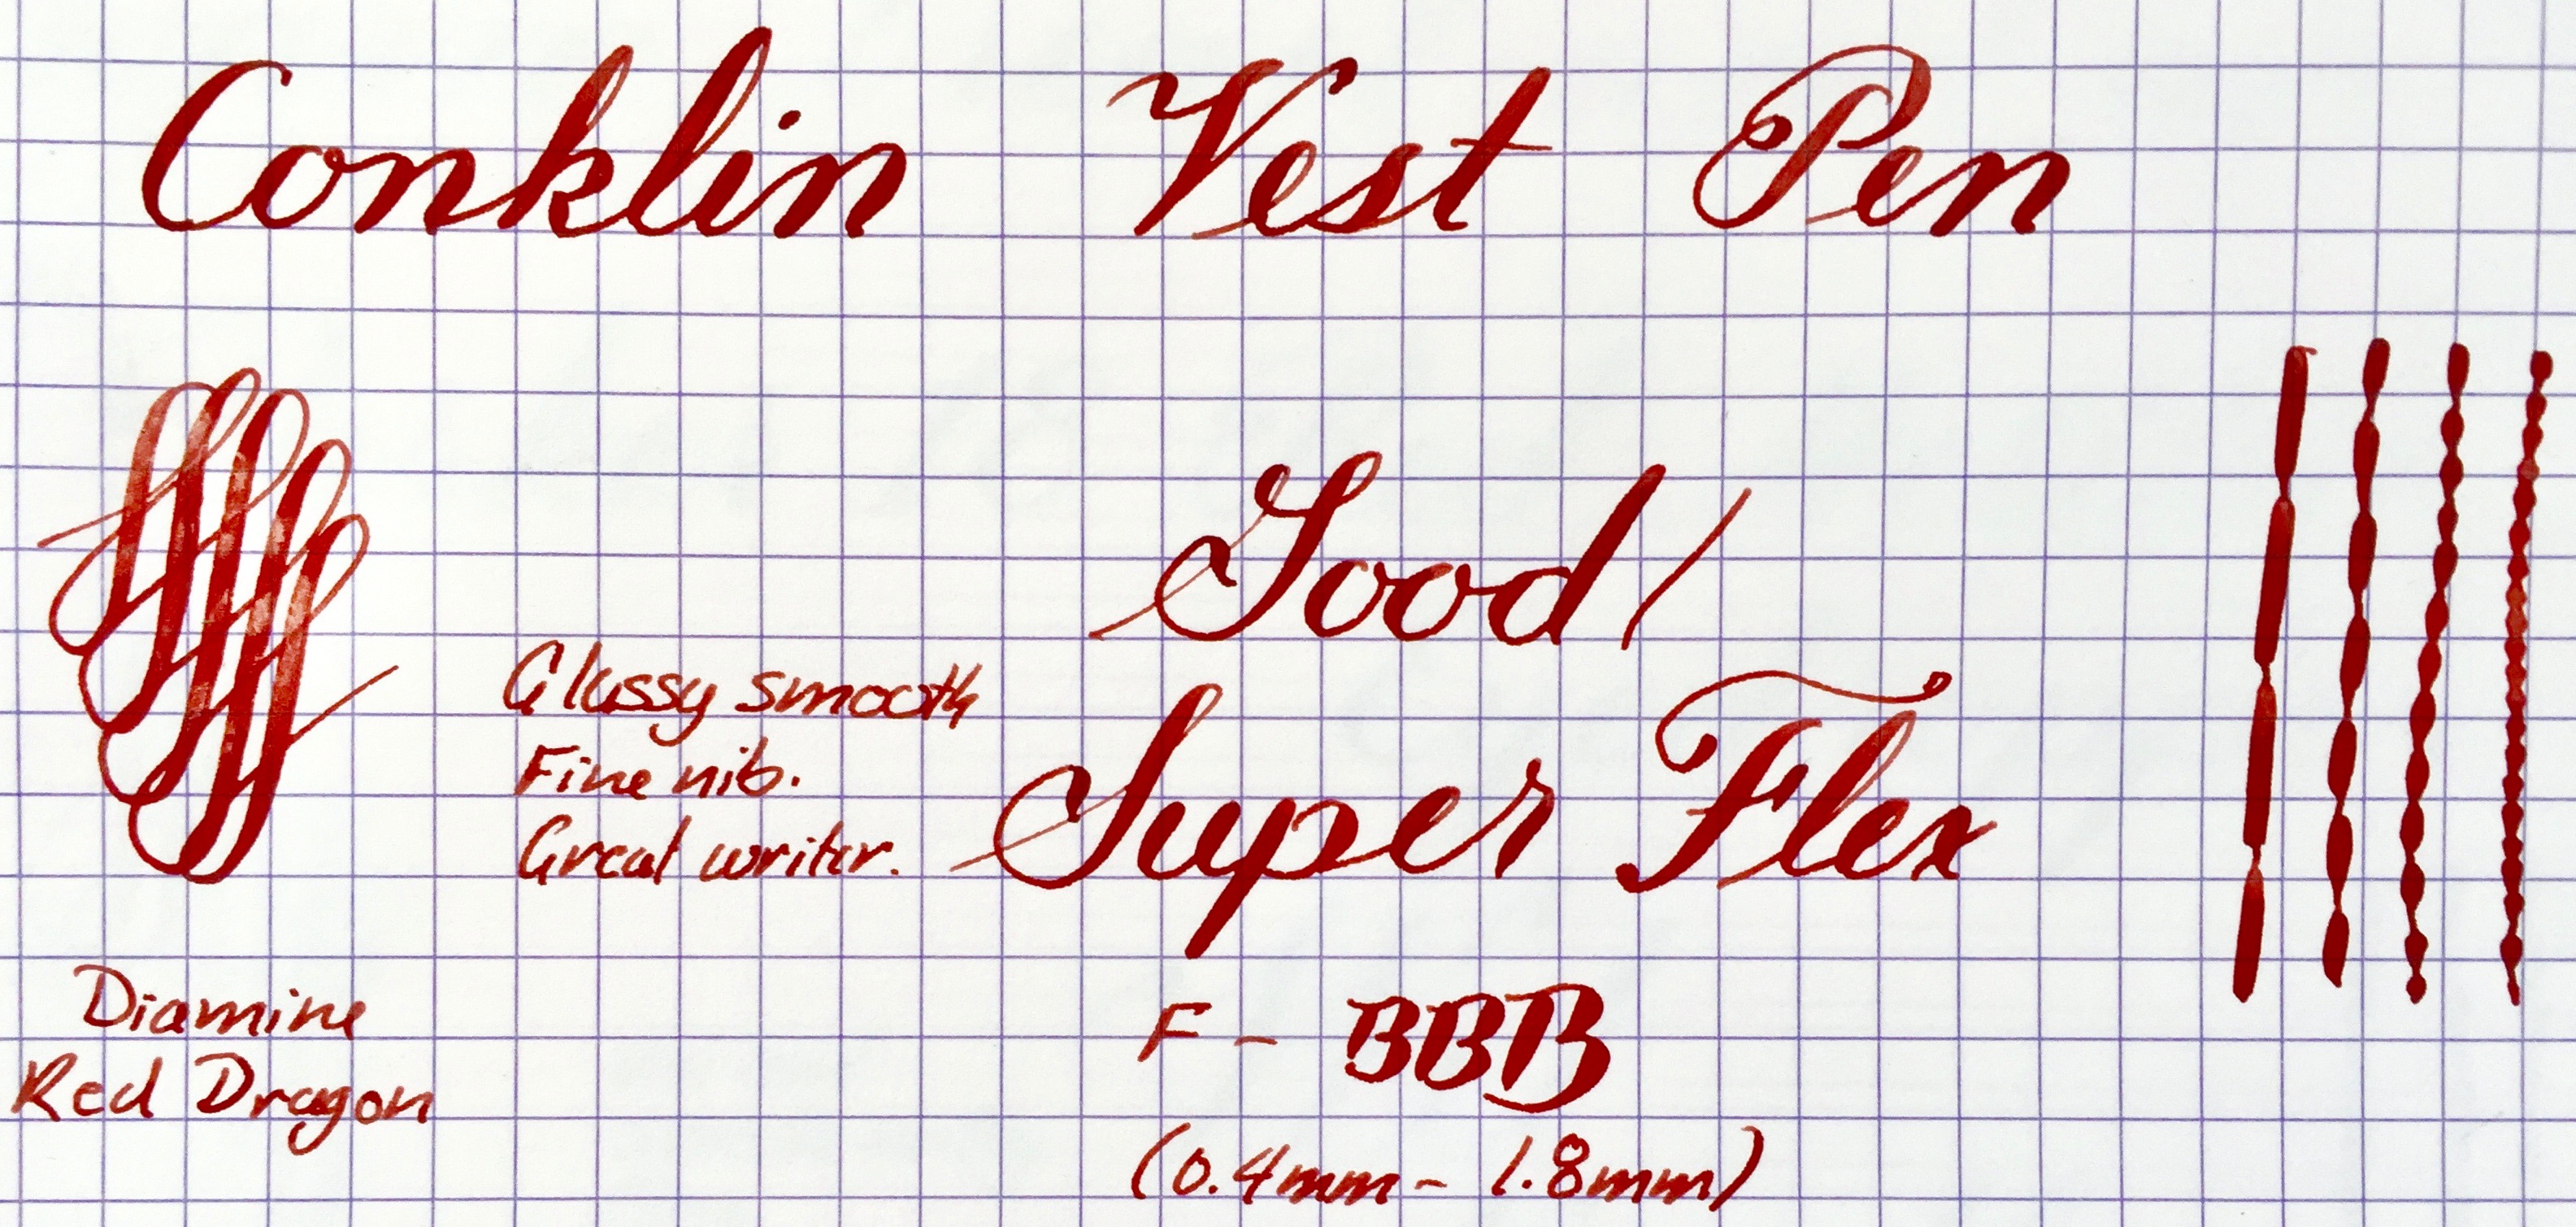 Conklin Vest Pen
Good/
Super Flex
Glassy smooth
Fine nib.
Great writer.
F - BBB
(0.4mm - 1.8mm)
Diamine
Red Dragon